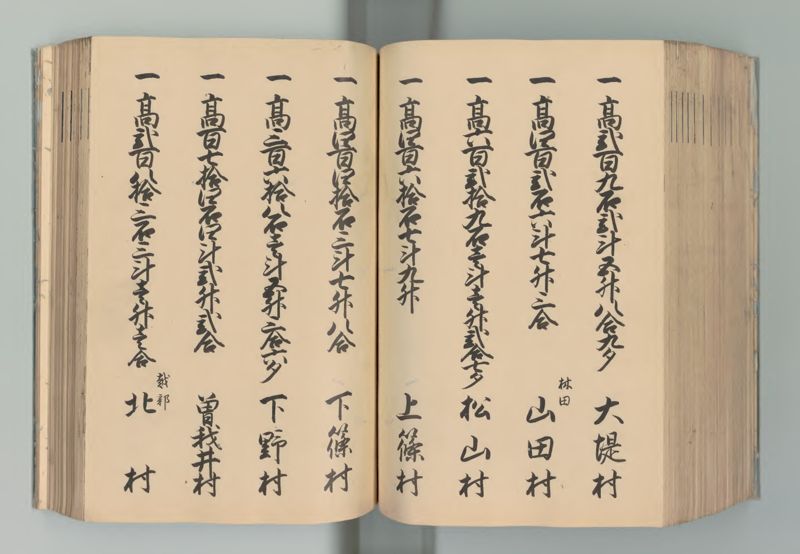 一 高弐百九石弐斗五升八合九夕 大堤村
一 高四百弐石六斗七升三合 林田 山田村
一 高六百弐拾九石壱斗壱升弐合七夕 松山村
一 高四百六拾石七斗九升 上篠村
一 高四百四拾石三斗七升八合 下篠村
一 高三百六拾八石壱斗五升三合六夕 下野村
一 高百七拾四石四斗弐升弐合 曽我井村
一 高弐百八拾三石三斗壱升壱合 越部 北村